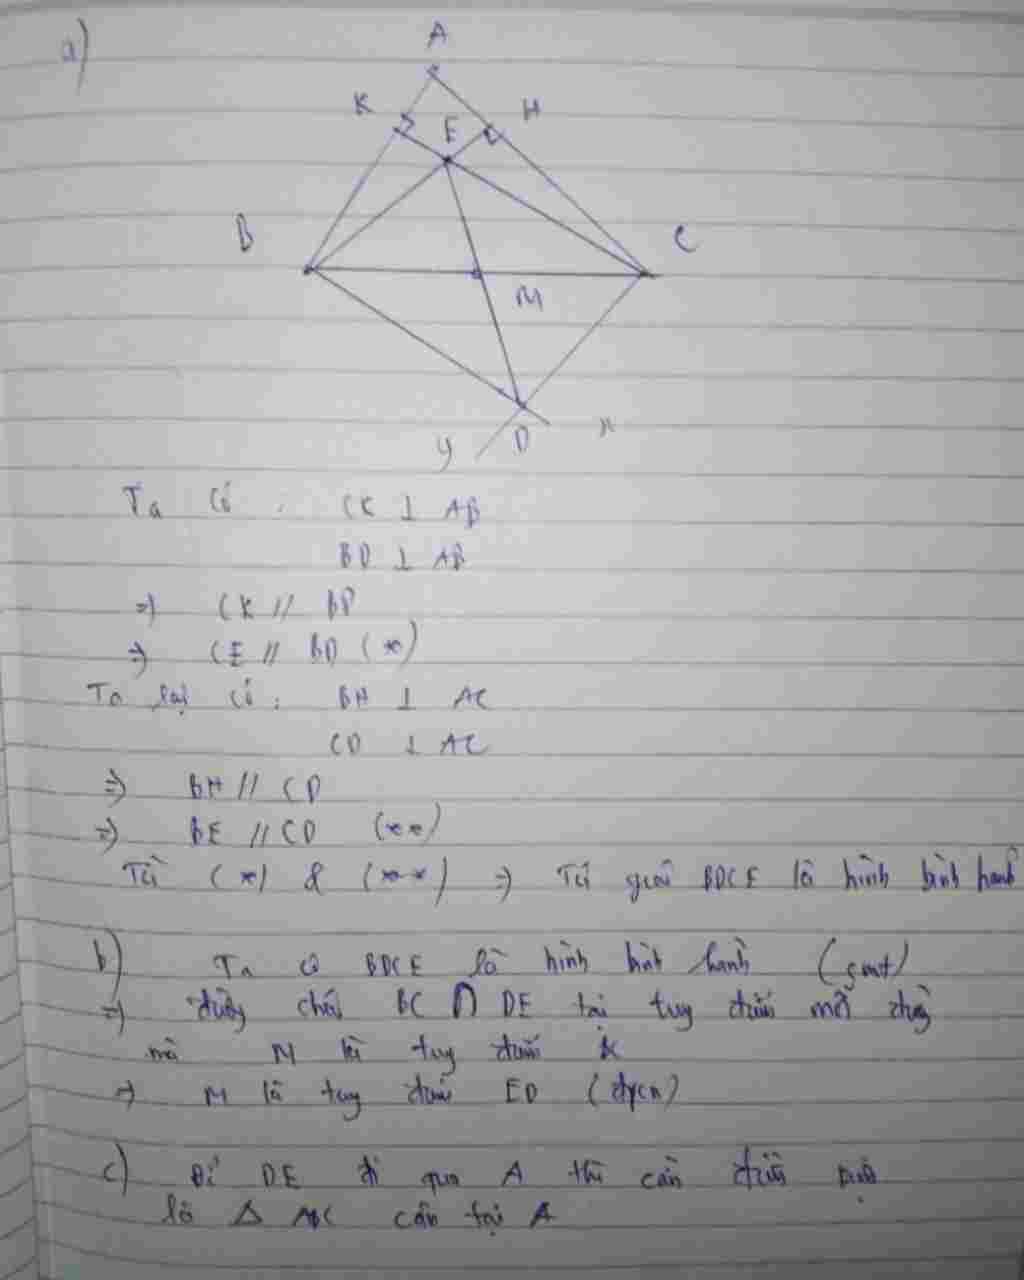 a)
A
K
E
H
B
C
M
y
D
x
Ta có : CK ⊥ AB
BD ⊥ AB
=> CK // BD
=> CE // BD (*)
Ta lại có : BH ⊥ AC
CD ⊥ AC
=> BH // CD
=> BE // CD (**)
Từ (*) & (**) => Tứ giác BDCE là hình bình hành
b) Ta có BDCE là hình bình hành (cmt)
=> đường chéo BC ∩ DE tại trung điểm mỗi đường
mà M là trung điểm BC
=> M là trung điểm ED (đpcm)
c) Để DE đi qua A thì cần điều kiện
là Δ ABC cân tại A